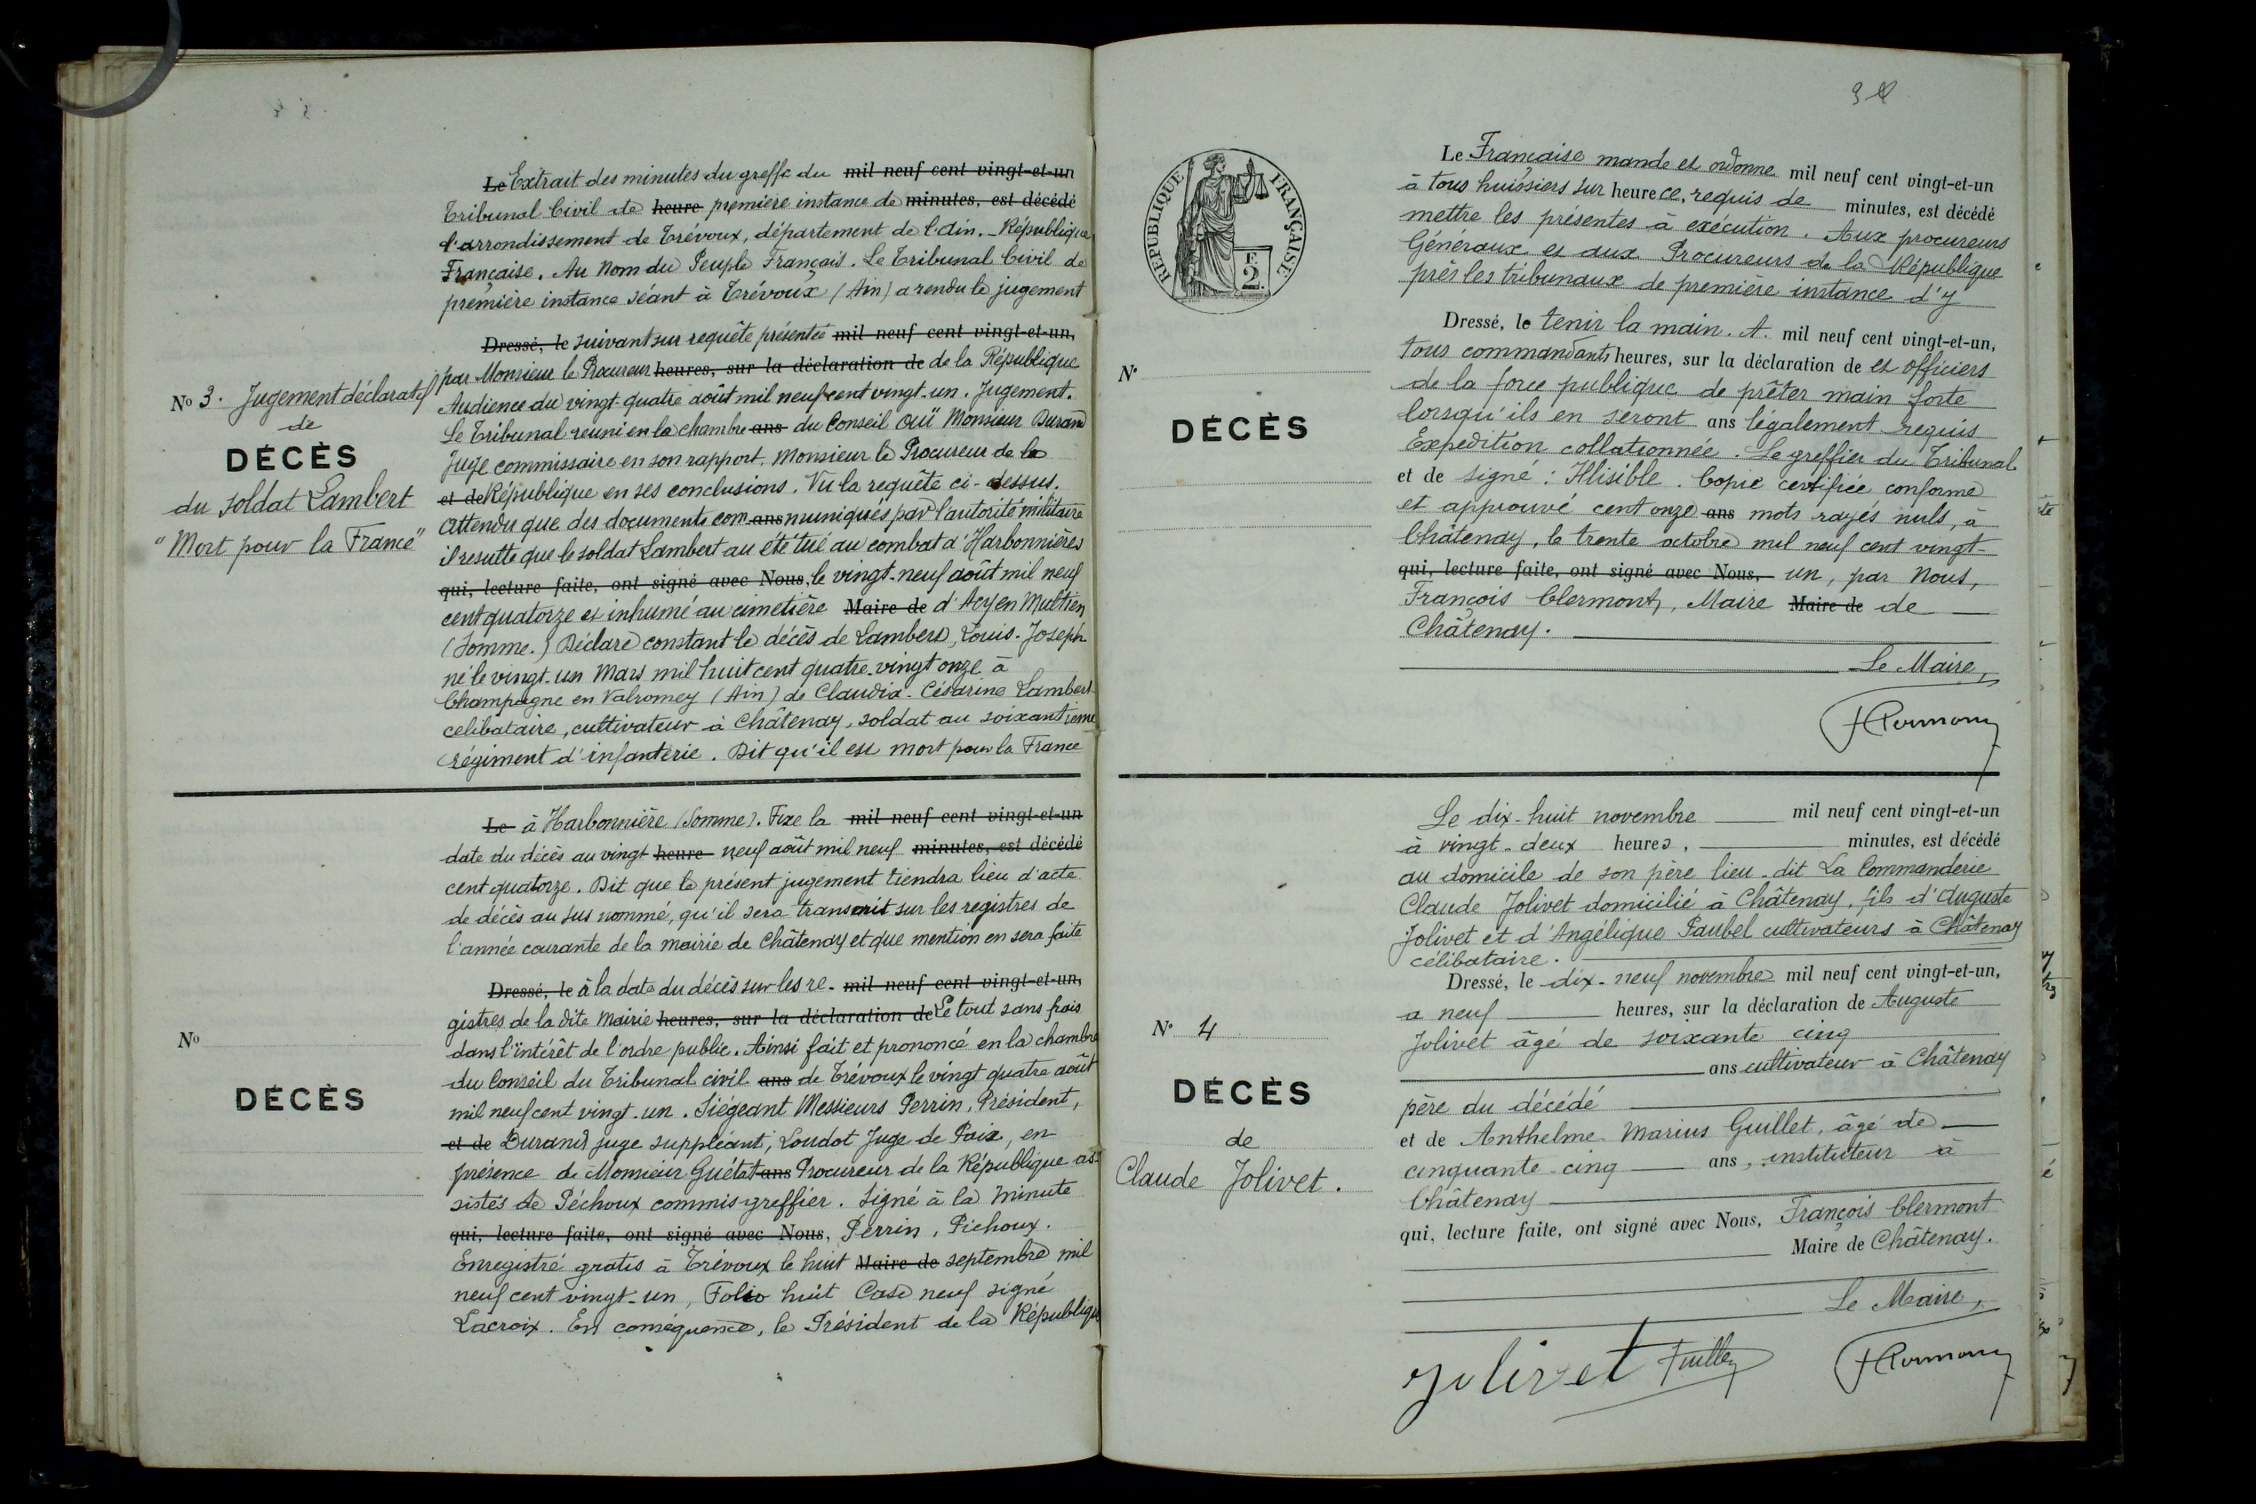 Le Extrait des minutes du greffe du mil neuf cent vingt-et-un
Tribunal Civil de heure première instance de minutes, est décédé
l'arrondissement de Trévoux, département de l'Ain. - République
Française. Au Nom du Peuple Français. Le Tribunal Civil de
première instance séant à Trévoux (Ain) a rendu le jugement
Dressé, le suivant sur requête présentée mil neuf cent vingt-et-un,
par Monsieur le Procureur heures, sur la déclaration de de la République
No 3. Jugement déclaratif
de
DÉCÈS
du soldat Lambert
"Mort pour la France"
Audience du vingt quatre août mil neuf cent vingt-un. Jugement.
Le Tribunal reuni en la chambre ans du Conseil Ouï Monsieur Durand
Juge commissaire en son rapport. Monsieur le Procureur de la
et de République en ses conclusions. Vu la requête ci-dessus.
Attendu que des documents com ans muniqués par l'autorité militaire
il resulte que le soldat Lambert au été tué au combat d'Harbonnières
qui, lecture faite, ont signé avec Nous, le vingt-neuf août mil neuf
cent quatorze et inhumé au cimetière Maire de d'Acy en Multien
(Somme.) Déclare constant le décès de Lambert, Louis-Joseph
né le vingt-un Mars mil huit cent quatre-vingt onze à
Champagne en Valromey (Ain) de Claudia-Césarine Lambert
celibataire, cultivateur à Châtenay, soldat au soixantième
régiment d'infanterie. Dit qu'il est mort pour la France
Le à Harbonnière (Somme). Fixe la mil neuf cent vingt-et-un
date du décès au vingt heure neuf août mil neuf minutes, est décédé
cent quatorze. Dit que le présent jugement tiendra lieu d'acte
de décès au sus nommé, qu'il sera transcrit sur les registres de
l'année courante de la mairie de Châtenay et que mention en sera faite
Dressé, le à la date du décès sur les re- mil neuf cent vingt-et-un,
gistres de la dite Mairie heures, sur la déclaration de Le tout sans frais
No
DÉCÈS
dans l'intérêt de l'ordre public. Ainsi fait et prononcé en la chambre
du Conseil du Tribunal civil ans de Trévoux le vingt quatre août
mil neuf cent vingt-un. Siégeant Messieurs Perrin, Président,
et de Durand juge suppléant, Loudot Juge de Paix, en
présence de Monsieur Guétat ans Procureur de la République as-
sistés de Péchoux commis-greffier. Signé à la minute
qui, lecture faite, ont signé avec Nous, Perrin, Pichoux.
Enregistré gratis à Trévoux le huit Maire de septembre mil
neuf cent vingt-un, Folio huit Case neuf signé
Lacroix. En conséquence, le Président de la République
RÉPUBLIQUE FRANÇAISE
F.
2.
Le Française mande et ordonne mil neuf cent vingt-et-un
à tous huissiers sur heure ce, requis de minutes, est décédé
mettre les présentes à exécution. Aux procureurs
Généraux et aux Procureurs de la République
près les tribunaux de première instance d'y
Dressé, le tenir la main. A. mil neuf cent vingt-et-un,
tous commandants heures, sur la déclaration de et officiers
No
DÉCÈS
de la force publique de prêter main forte
lorsqu'ils en seront ans légalement requis
Expedition collationnée. Le greffier du Tribunal
et de signé : Illisible. Copie certifiée conforme
et approuvé cent onze ans mots rayés nuls, à
Châtenay, le trente octobre mil neuf cent vingt-
qui, lecture faite, ont signé avec Nous, un, par Nous,
François Clermont, Maire Maire de de
Châtenay.
Le Maire,
FClermont
Le dix-huit novembre mil neuf cent vingt-et-un
à vingt-deux heures, minutes, est décédé
au domicile de son père lieu-dit La Commanderie
Claude Jolivet domicilié à Châtenay, fils d'Auguste
Jolivet et d'Angélique Paubel cultivateurs à Châtenay
célibataire.
Dressé, le dix-neuf novembre mil neuf cent vingt-et-un,
a neuf heures, sur la déclaration de Auguste
No 4
DÉCÈS
de
Claude Jolivet.
Jolivet âgé de soixante cinq
ans cultivateur à Châtenay
père du décédé
et de Anthelme Marius Guillet, âgé de
cinquante-cinq ans, instituteur à
Châtenay
qui, lecture faite, ont signé avec Nous, François Clermont
Maire de Châtenay.
Le Maire,
Jolivet Guillet FClermont